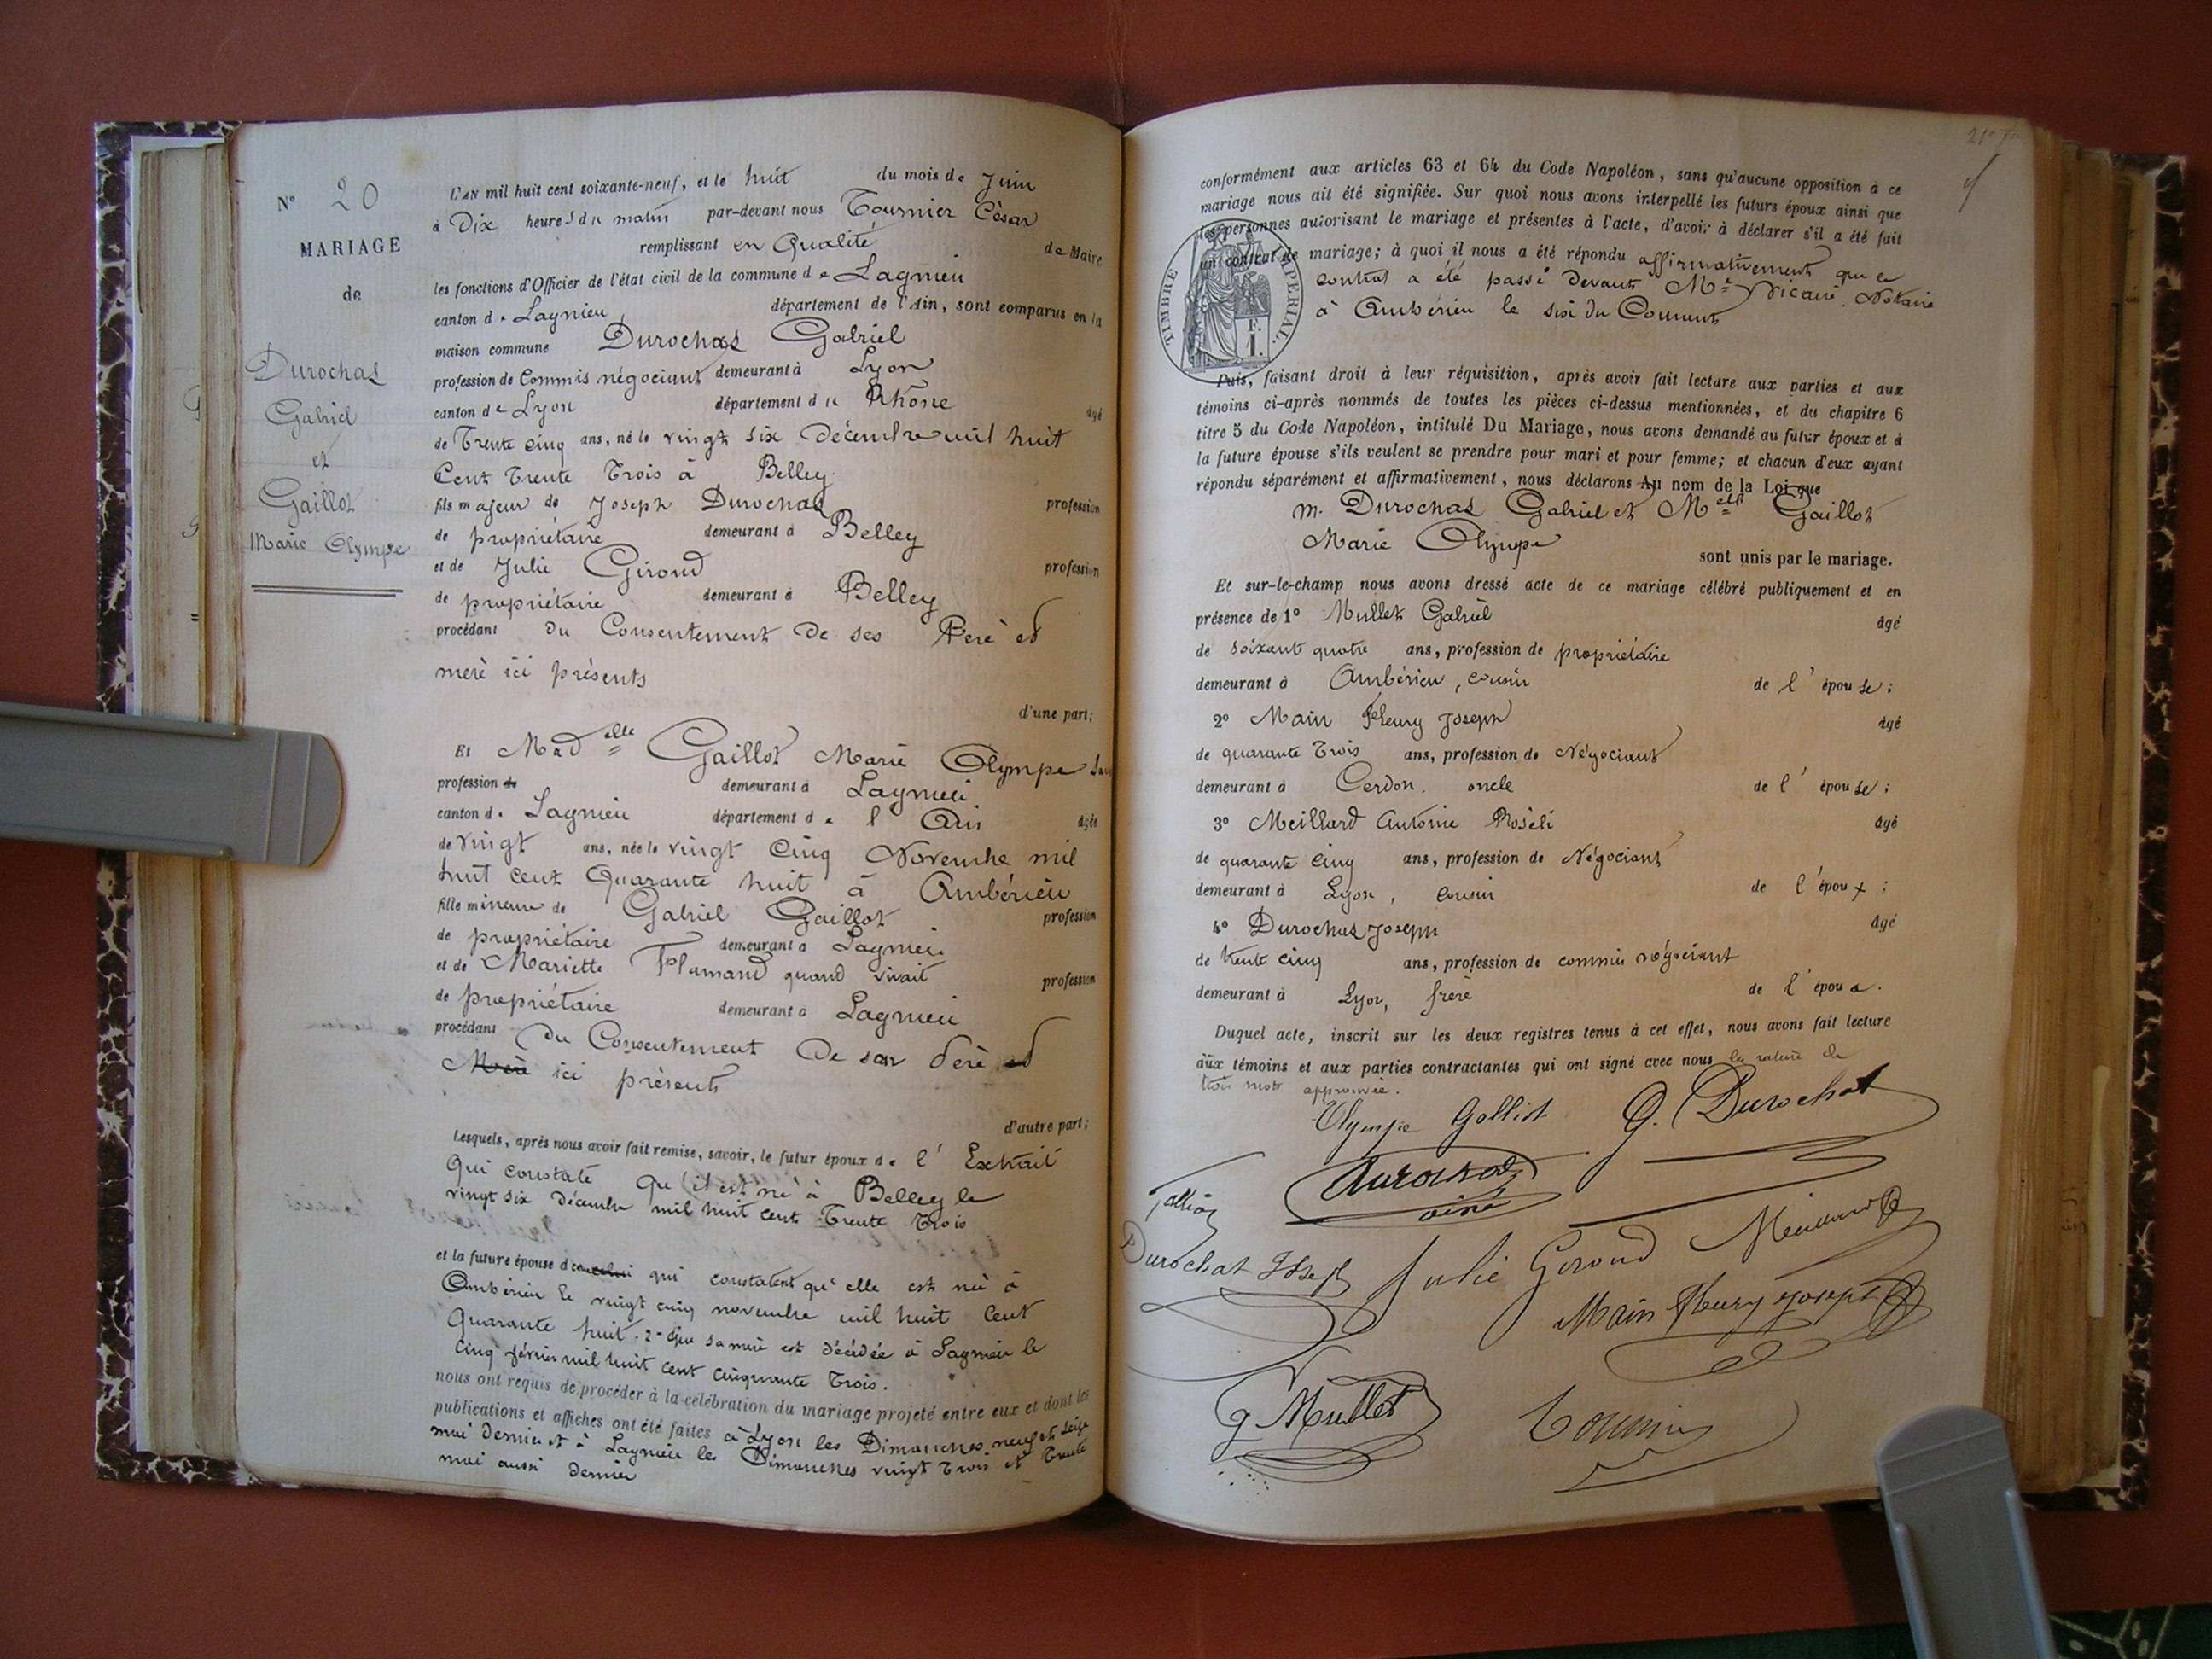 N° 20
MARIAGE
de
Durochat
Gabriel
et
Gaillot
Marie Olympe
L'AN mil huit cent soixante-neuf, et le huit du mois de Juin
à Dix heures du matin par-devant nous Tournier César
remplissant en Qualité de Maire
les fonctions d'Officier de l'état civil de la commune de Lagnieu
canton de Lagnieu département de l'Ain, sont comparus en la
maison commune Durochat Gabriel
profession de Commis négociant demeurant à Lyon
canton de Lyon département du Rhône âgé
de Trente cinq ans, né le vingt six décembre mil huit
Cent Trente Trois à Belley
fils majeur de Joseph Durochat profession
de propriétaire demeurant à Belley
et de Julie Giroud profession
de propriétaire demeurant à Belley
procédant du Consentement de ses Père et
mère ici présents
d'une part;
Et Madelle Gaillot Marie Olympe
profession de demeurant à Lagnieu
canton de Lagnieu département de l'Ain âgée
de vingt ans, née le vingt Cinq Novembre mil
huit cent Quarante huit à Ambérieu
fille mineure de Gabriel Gaillot profession
de propriétaire demeurant à Lagnieu
et de Mariette Flamand quand vivait profession
de propriétaire demeurant à Lagnieu
procédant du Consentement de son Père et
Mère ici présent
d'autre part;
Lesquels, après nous avoir fait remise, savoir, le futur époux de l'Extrait
Qui constate Qu'il est né à Belley le
vingt six décembre mil huit cent Trente Trois
et la future épouse de qui constatent qu'elle est née à
Ambérieu le vingt cinq novembre mil huit Cent
Quarante huit. 2° que sa mère est décédée à Lagnieu le
Cinq février mil huit cent cinquante Trois.
nous ont requis de procéder à la célébration du mariage projeté entre eux et dont les
publications et affiches ont été faites à Lyon les Dimanches neuf et seize
mai dernier et à Lagnieu les Dimanches vingt Trois et Trente
mai aussi dernier
conformément aux articles 63 et 64 du Code Napoléon, sans qu'aucune opposition à ce
mariage nous ait été signifiée. Sur quoi nous avons interpellé les futurs époux ainsi que
les personnes autorisant le mariage et présentes à l'acte, d'avoir à déclarer s'il a été fait
un contrat de mariage; à quoi il nous a été répondu affirmativement que ce
contrat a été passé devant Me Vicaire Notaire
à Ambérieu le six du Courant
TIMBRE IMPÉRIAL.
F.
1.
Puis, faisant droit à leur réquisition, après avoir fait lecture aux parties et aux
témoins ci-après nommés de toutes les pièces ci-dessus mentionnées, et du chapitre 6
titre 5 du Code Napoléon, intitulé Du Mariage, nous avons demandé au futur époux et à
la future épouse s'ils veulent se prendre pour mari et pour femme; et chacun d'eux ayant
répondu séparément et affirmativement, nous déclarons Au nom de la Loi que
M. Durochat Gabriel et Melle Gaillot
Marie Olympe sont unis par le mariage.
Et sur-le-champ nous avons dressé acte de ce mariage célébré publiquement et en
présence de 1° Mullet Gabriel âgé
de soixante quatre ans, profession de propriétaire
demeurant à Ambérieu, cousin de l'épouse;
2° Main Fleury Joseph âgé
de quarante Trois ans, profession de Négociant
demeurant à Cerdon. oncle de l'épouse;
3° Meillard Antoine âgé
de quarante cinq ans, profession de Négociant
demeurant à Lyon, cousin de l'époux;
4° Durochat Joseph âgé
de trente cinq ans, profession de commis négociant
demeurant à Lyon, frère de l'époux.
Duquel acte, inscrit sur les deux registres tenus à cet effet, nous avons fait lecture
aux témoins et aux parties contractantes qui ont signé avec nous la rature de
trois mots approuvée.
Olympe Galliot G. Durochat
ainé
Durochat Joseph Julie Giroud
Main Fleury Joseph
G Mullet Tournier